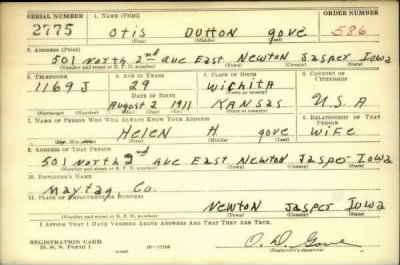 SERIAL NUMBER 1. NAME (Print) ORDER NUMBER
2775 Otis Dutton Gove 586
(First) (Middle) (Last)
2. ADDRESS (Print)
501 North 2nd Ave East Newton Jasper Iowa
(Number and street or R. F. D. number) (Town) (County) (State)
3. TELEPHONE 4. AGE IN YEARS 5. PLACE OF BIRTH 6. COUNTRY OF CITIZENSHIP
1169 J 29 Wichita
DATE OF BIRTH (Town or county)
August 2 1911 Kansas U.S.A
(Exchange) (Number) (Mo.) (Day) (Yr.) (State or country)
7. NAME OF PERSON WHO WILL ALWAYS KNOW YOUR ADDRESS 8. RELATIONSHIP OF THAT PERSON
Helen H Gove Wife
(First) (Middle) (Last)
9. ADDRESS OF THAT PERSON
501 North 2nd Ave East Newton Jasper Iowa
(Number and street or R. F. D. number) (Town) (County) (State)
10. EMPLOYER'S NAME
Maytag Co.
11. PLACE OF EMPLOYMENT OR BUSINESS
Newton Jasper Iowa
(Number and street or R. F. D. number) (Town) (County) (State)
I AFFIRM THAT I HAVE VERIFIED ABOVE ANSWERS AND THAT THEY ARE TRUE.
REGISTRATION CARD
D. S. S. Form 1 (over) O. D. Gove
(Registrant's signature)